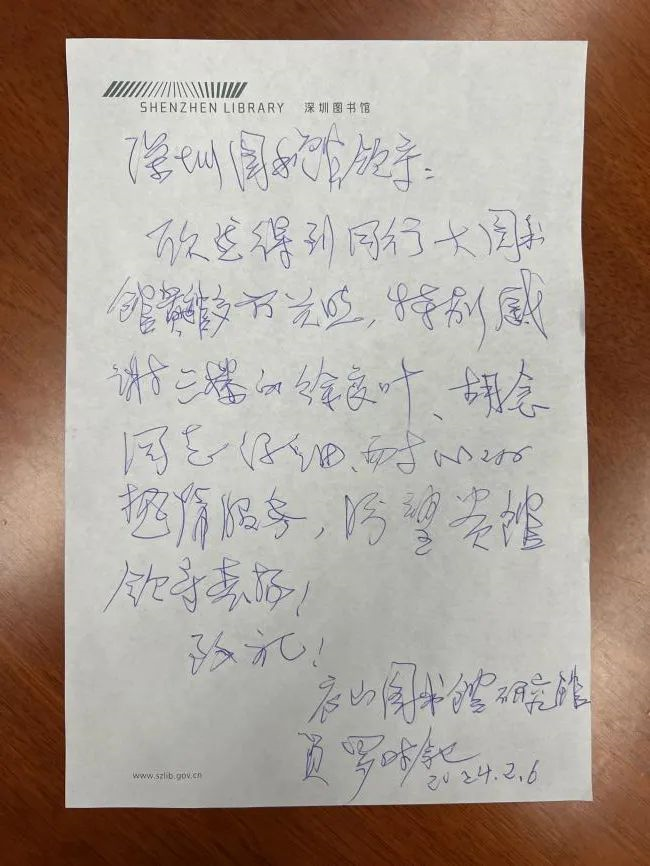 SHENZHEN LIBRARY 深圳图书馆
深圳图书馆领导：
欣然得到同行大图书
馆贵馆的关照，特别感
谢三楼的徐良叶、胡念
同志仔细、耐心的
热情服务，盼望贵馆
领导表扬！
致礼！
图书馆研究馆
员 罗时
2024.2.6
www.szlib.gov.cn